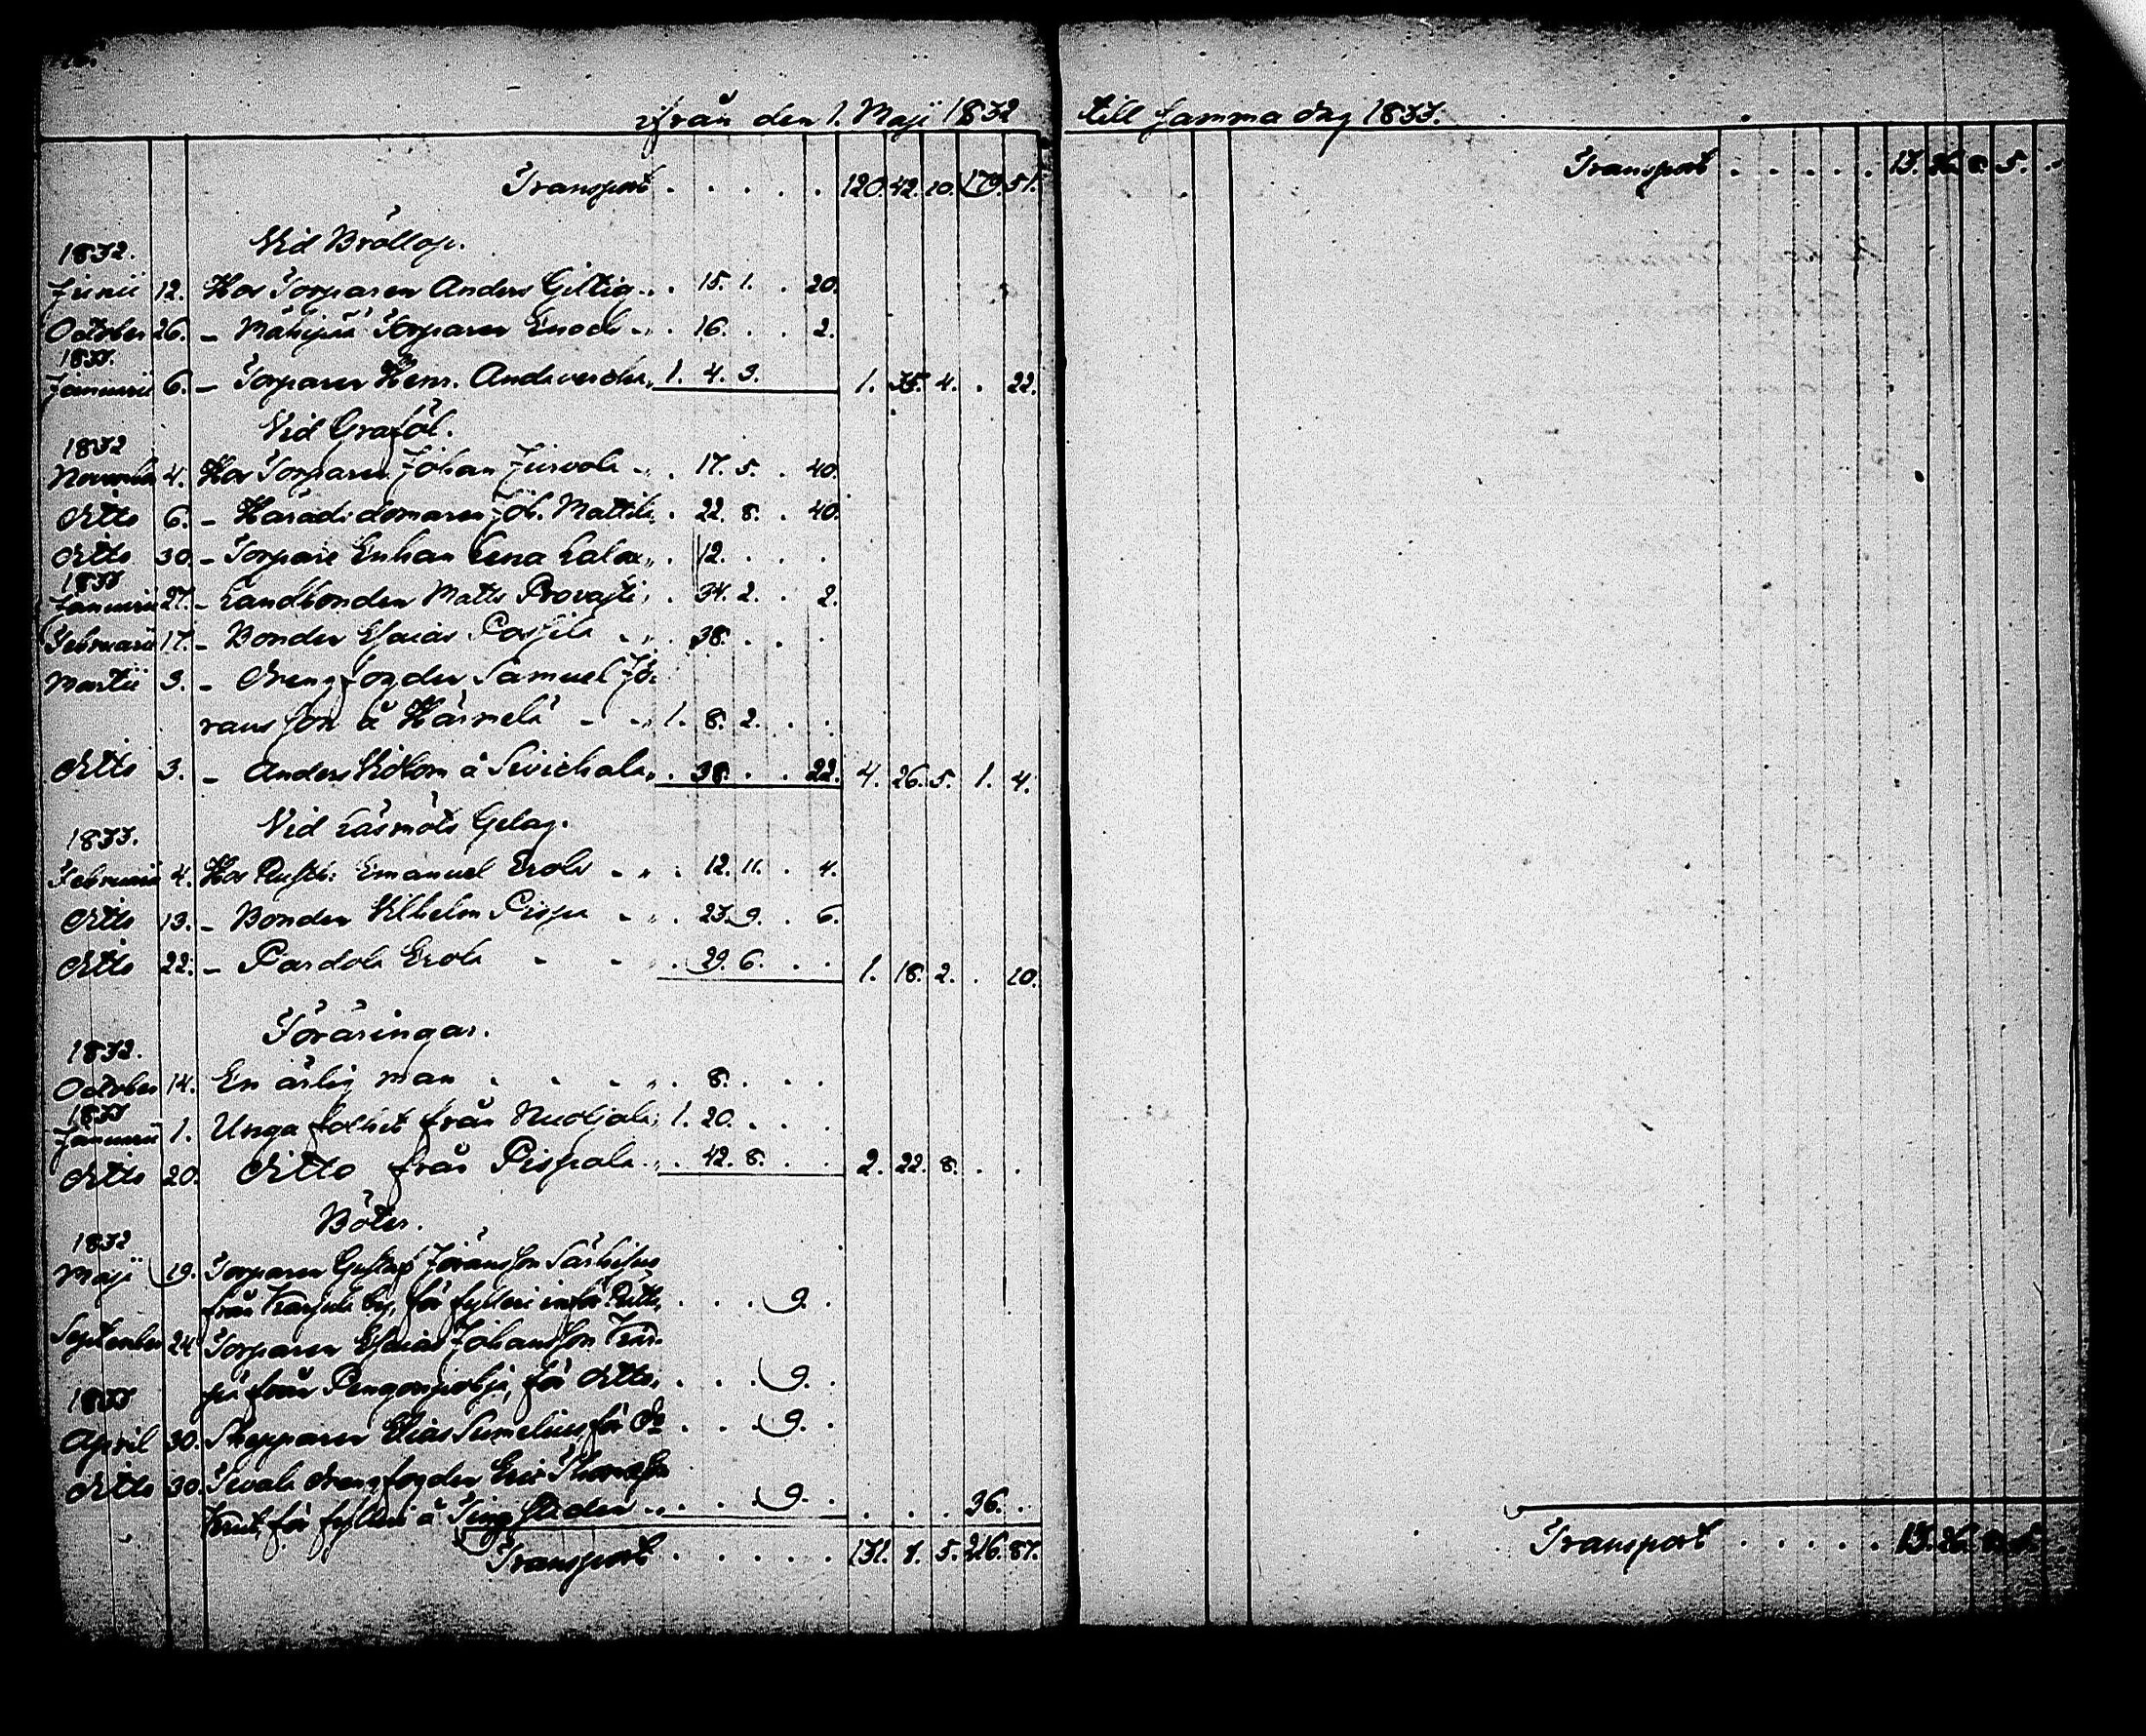 ifrån den 1. Maji 1832 till samma dag 1833.
Transport . . . . . 120. 42. 10. 179. 51.
1832. Vid Bröllop.
Junii 12. Hos Torparen Anders Giltig . 15. 1. . 20.
October 26. - Torparen Enoch . 16. . . 2.
1833.
Januarii 6. - Torparen Henr. 1. 4. 3. 1. 35. 4. . 22.
Vid Graföl.
1832
November 4. Hos Torparen Johan Juvola . 17. 5. . 40.
Ditto 6. - Häradsdomaren Joh. Mattila . 22. 8. . 40.
Ditto 30. - Torpare Enkan Lena . 12. . . .
1833
Januarii 27. - Landbonden Matts Provasti . 34. 2. . 2.
Februarii 17. - Bonden Esaias . 38. . . .
Martii 3. - Drengfogden Samuel Jö-
ransson å Härmelä 1. 8. 2. . .
Ditto 3. - Anders å . 38. . . 22. 4. 26. 5. 1. 4.
Vid Läsmöts Gelag.
1833.
Februarii 4. Hos Rusth: Emanuel Erola . 12. 11. . 4.
Ditto 13. - Bonden Vilhelm Pispa . 23. 9. . 6.
Ditto 22. - Pardola Erola . 29. 6. . . 1. 18. 2. . 10.
Föräringar.
1832.
October 14. En ärlig man . 8. . . .
1833
Januarii 1. Unga folket från Nuoljala 1. 20. . . .
Ditto 20. Ditto från Pispala . 42. 8. . . 2. 22. 8. . .
Böter.
1832
Maji 19. Torparen Gustaf Jöransson
från by, för fylleri inför Rätta . . . 9. .
September 24. Torparen Esaias Johansson
från för ditto . . . 9. .
1833
April 30. Elias Sumelius för do . . . 9. .
Ditto 30. drengfogden Eric Thomasson
för fylleri å Tingstaden . . . 9. . . . . 36. .
Transport . . . . . 131. 1. 5. 216. 87.
Transport . . . . . 13. 26. 8. 5. .
Transport . . . . . 13. 26. 8. 5. .